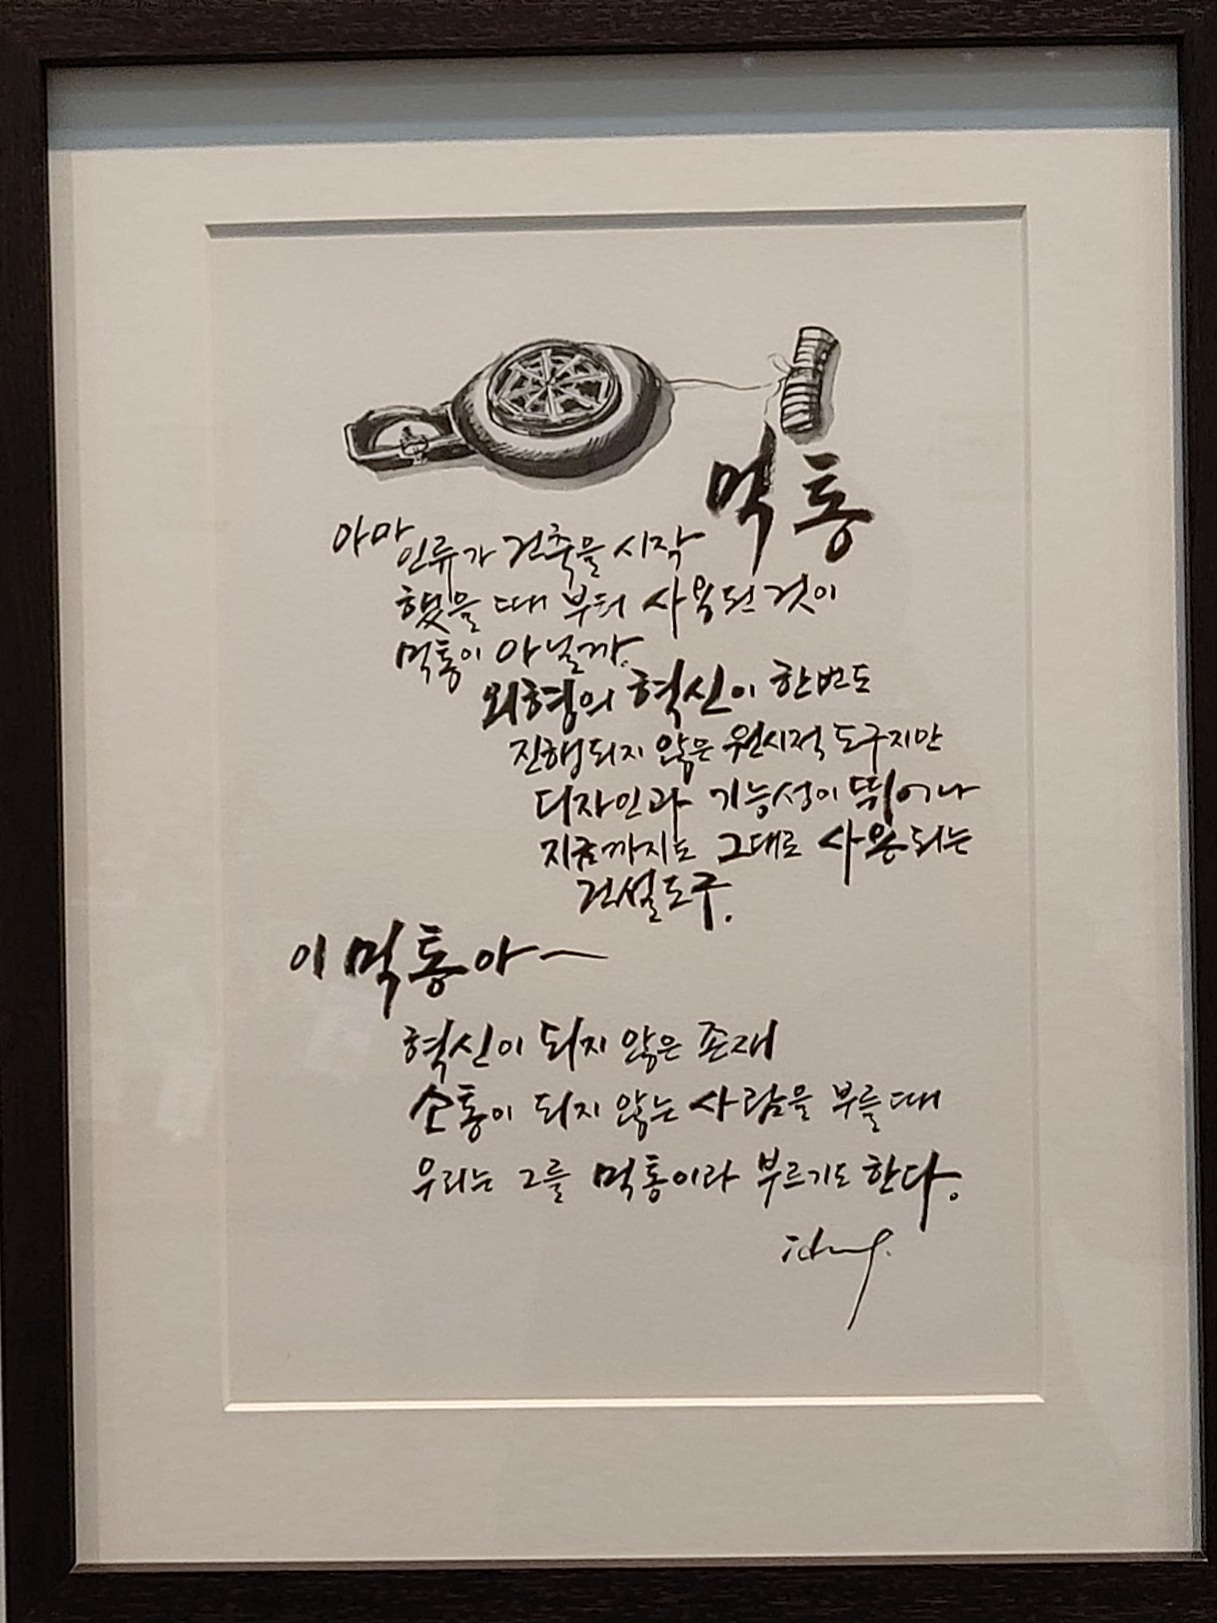 먹통
아마 인류가 건축을 시작
했을 때 부터 사용된 것이
먹통이 아닐까.
외형의 혁신이 한번도
진행되지 않은 원시적 도구지만
디자인과 기능성이 뛰어나
지금까지도 그대로 사용되는
건설도구.
이 먹통아~
혁신이 되지 않은 존재
소통이 되지 않는 사람을 부를 때
우리는 그를 먹통이라 부르기도 한다.